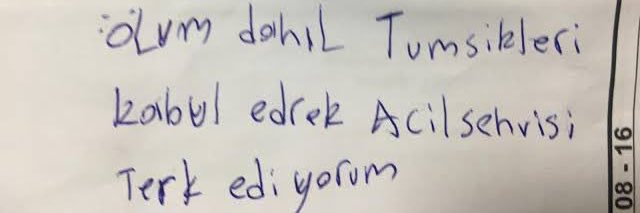 ÖLUM dahıL Tumsikleri
kabul edrek Acilsehvisi
Terk ediyorum
08 - 16